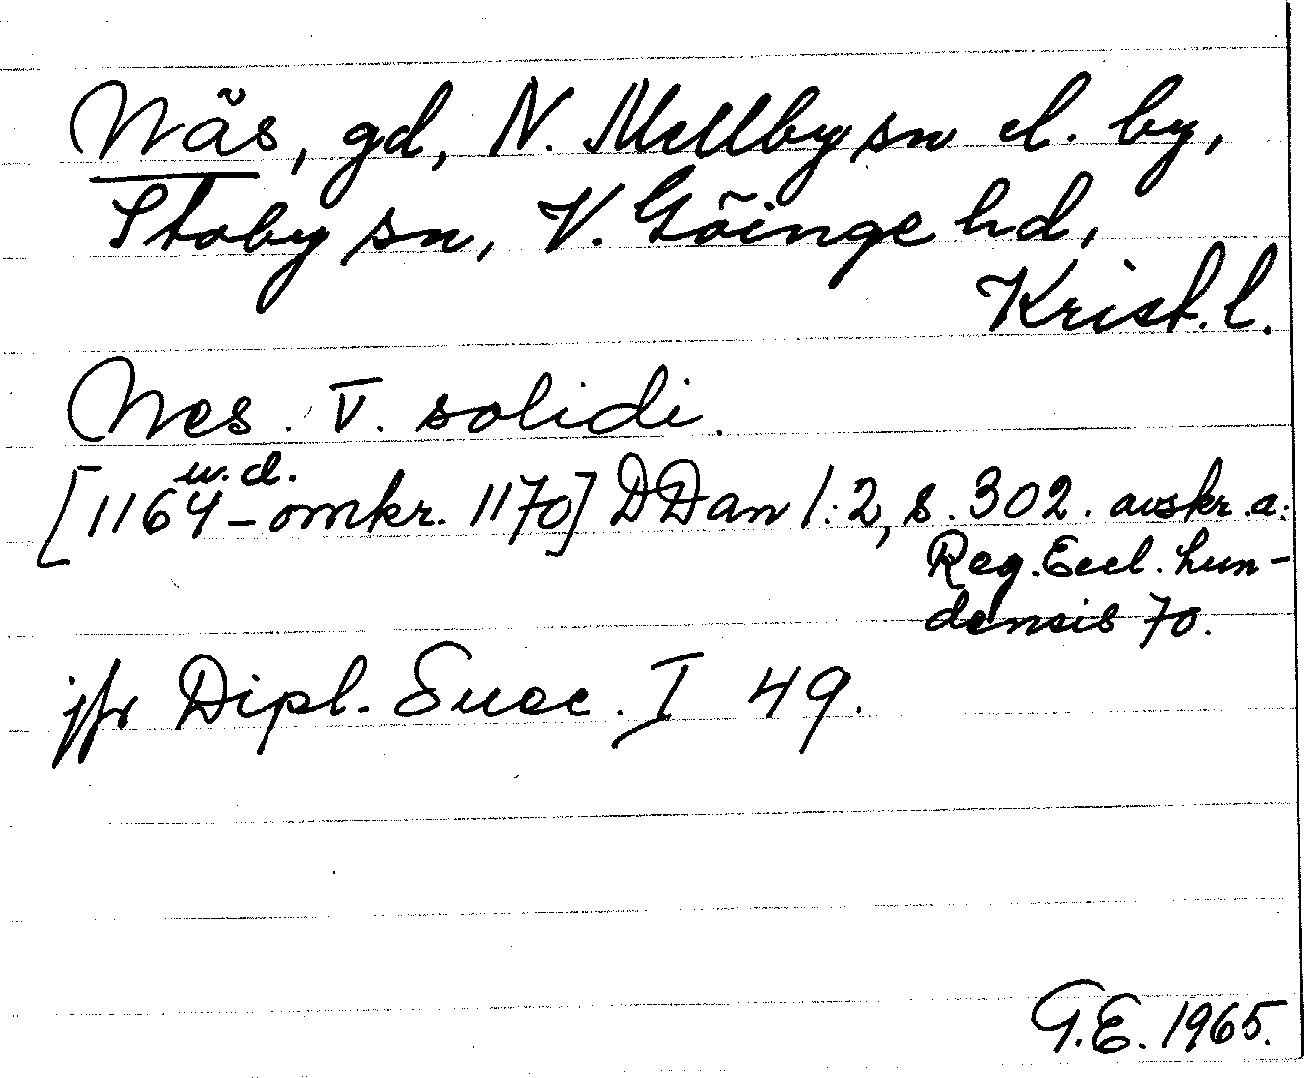 Näs, gd, N. Mellby sn el. by,
Stoby sn, V. Göinge hd,
Krist. l.
Nes. V. solidi.
u. d.
[1164 – omkr. 1170] DDan 1:2, s. 302. avskr. a:
Reg. Eccl. Lun-
densis 70.
jfr Dipl. Suec. I 49.
G.E. 1965.